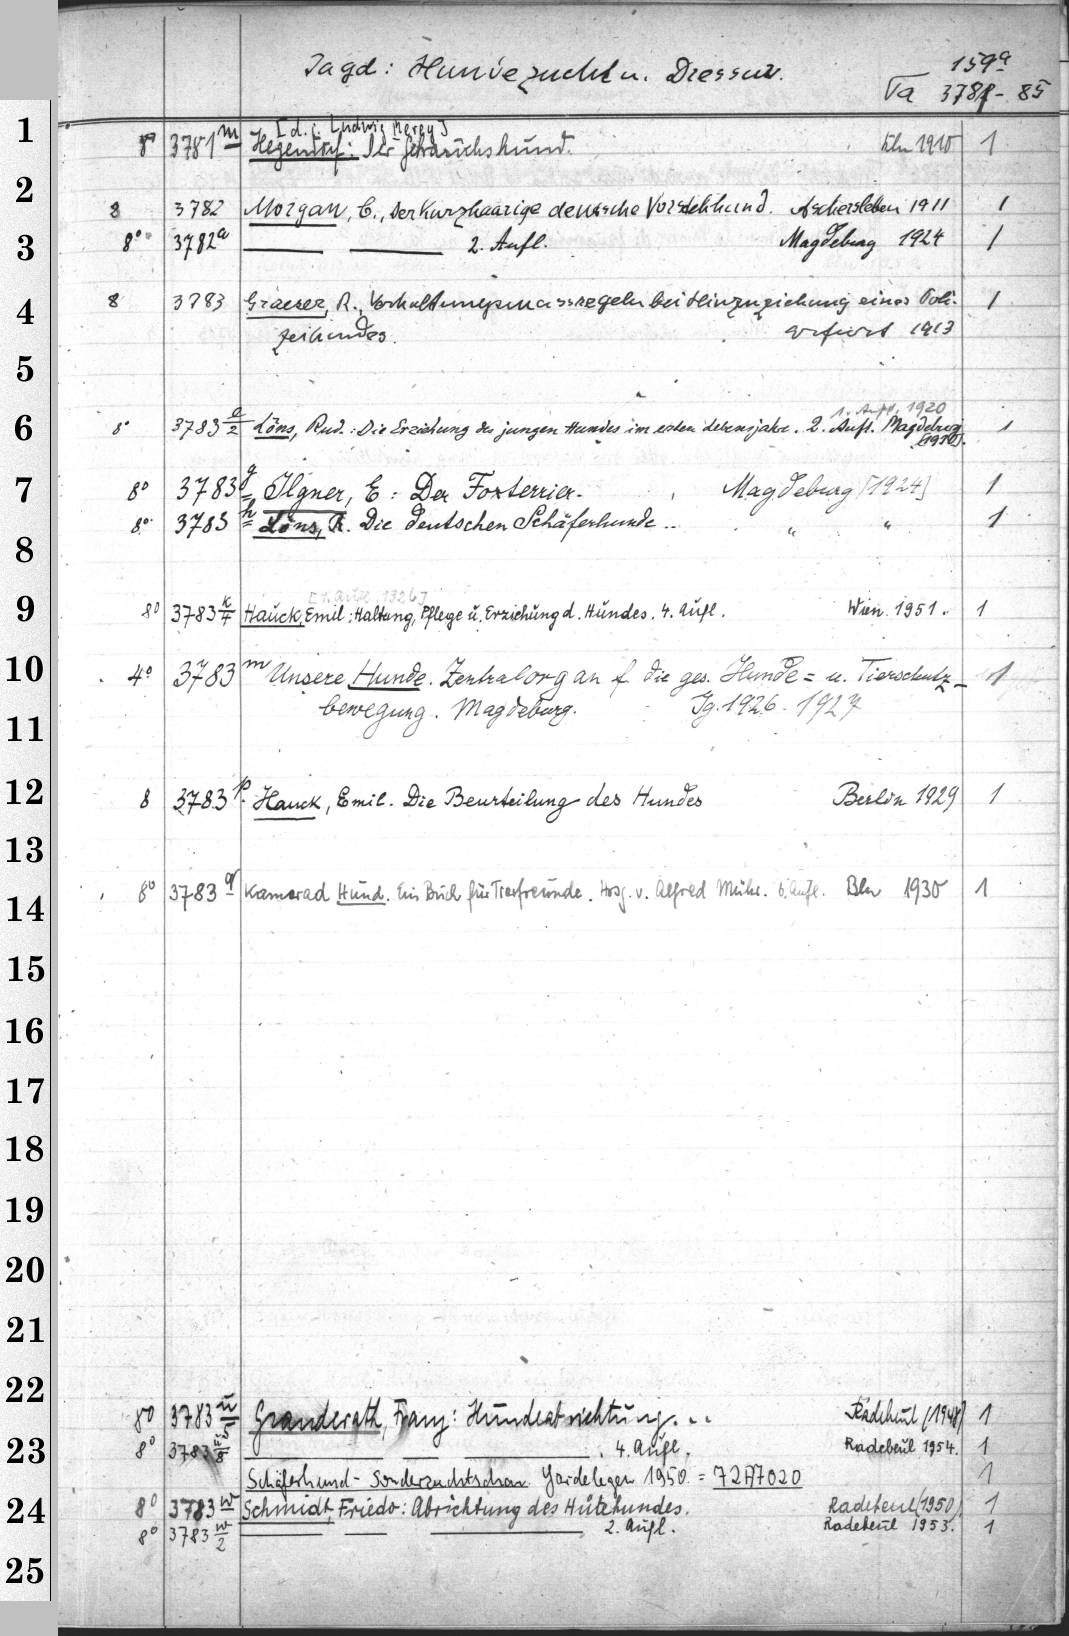 Jagd: Hundezucht u. Dressur.
159a
Ta 3781-85
1
[d. i. Ludwig Mérey]
8° 3781 m Hegendorf: Der Gebrauchshund. Bln 1910 1
2
8 3782 Morgan, C., Der Kurzhaarige deutsche Vorstehhund. Aschersleben 1911 1
3
8° 3782a 2. Aufl. Magdeburg 1924 1
4
8 3783 Graeser, R., Verhaltungsmassregeln bei Hinzuziehung eines Poli-
zeihundes. Erfurt 1913
5
1. Aufl. 1920
6
8° 3783 e/2 Löns, Rud.: Die Erziehung des jungen Hundes im ersten Lebensjahr. 2. Aufl. Magdeburg
7
8° 3783 g Ilgner, E: Der Foxterrier. Magdeburg [1924] 1
8° 3783 h Löns, R. Die deutschen Schäferhunde .. " " 1
8
9
8° 3783 k/4 Hauck, Emil: Haltung, Pflege u. Erziehung d. Hundes. 4. Aufl. Wien 1951. 1
10
4° 3783 m Unsere Hunde. Zentralorgan f. die ges. Hunde= u. Tierschutz- 1
bewegung. Magdeburg. Jg. 1926. 1927
11
12
8 3783 p. Hauck, Emil. Die Beurteilung des Hundes Berlin 1929 1
13
14
8° 3783 q Kamerad Hund. Ein Buch für Tierfreunde. Hrsg. v. Alfred Mühr. 6. Aufl. Bln 1930 1
15
16
17
18
19
20
21
22
8° 3783 u Granderath, Franz: Hundeabrichtung. .. Radebeul (1948) 1
23
8° 3783 4. Aufl. Radebeul 1954. 1
Schäferhund-Sonderzuchtschau Gardelegen 1950. = 72A7020 1
24
8° 3783 w Schmidt, Friedo: Abrichtung des Hütehundes. Radebeul (1950) 1
8° 3783 w/2 2. Aufl. Radebeul 1953. 1
25